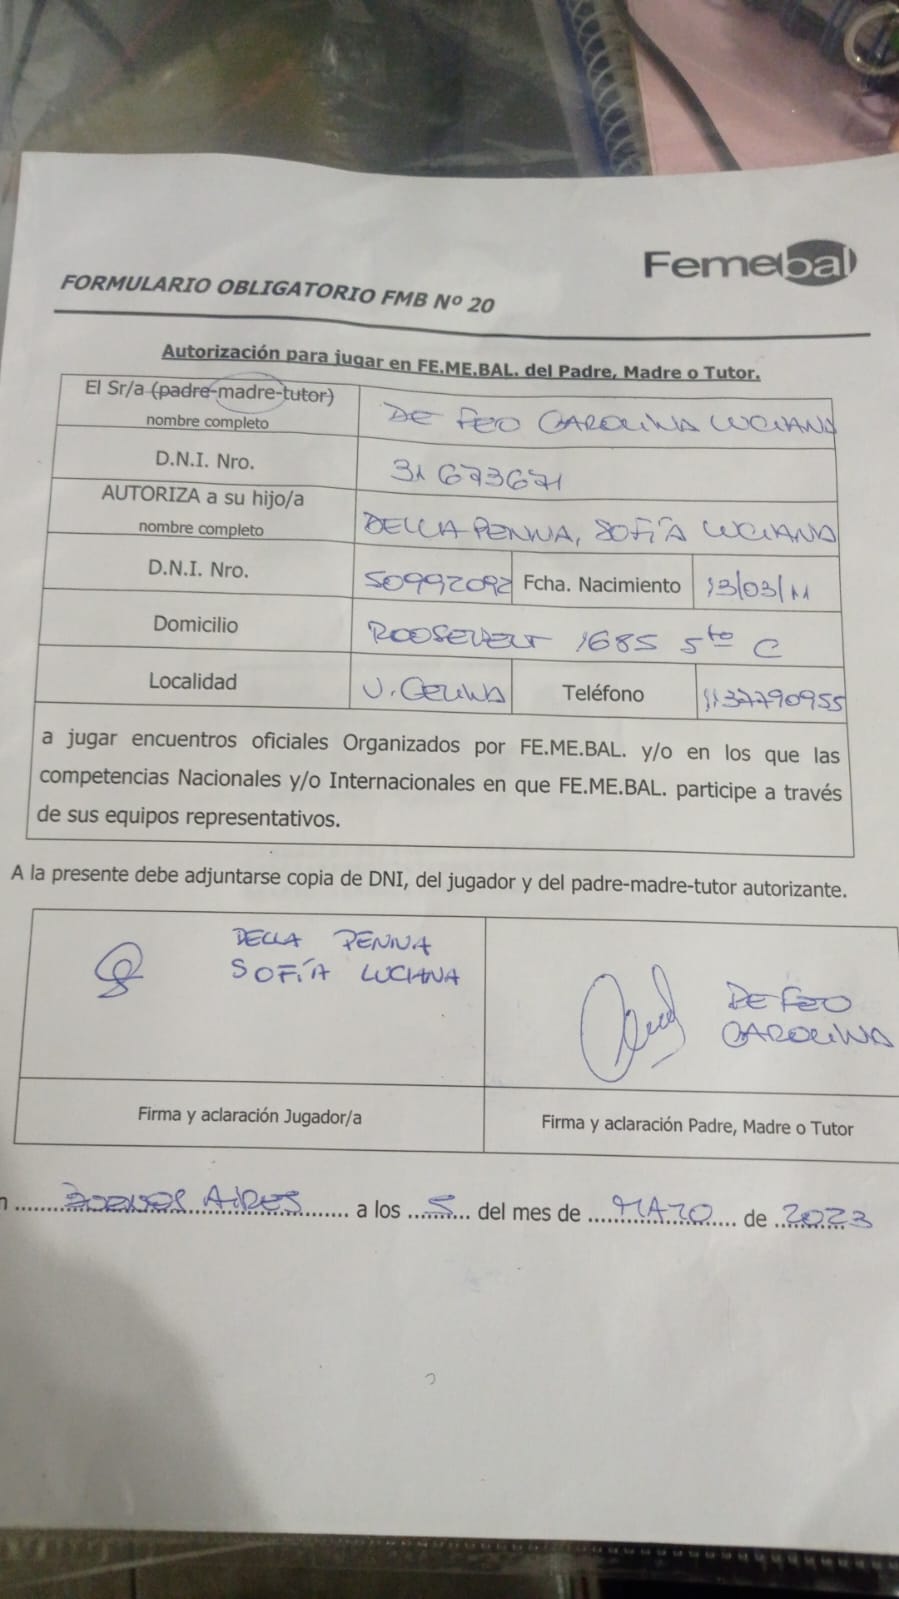 Femebal
FORMULARIO OBLIGATORIO FMB Nº 20
Autorización para jugar en FE.ME.BAL. del Padre, Madre o Tutor.
El Sr/a (padre-madre-tutor) DE FEO CAROLINA LUCIANA
nombre completo
D.N.I. Nro. 31673671
AUTORIZA a su hijo/a DELLA PENNA, SOFÍA LUCIANA
nombre completo
D.N.I. Nro. 50992092 Fcha. Nacimiento 13/03/11
Domicilio ROOSEVELT 1685 5to C
Localidad V. CELINA Teléfono 1137790955
a jugar encuentros oficiales Organizados por FE.ME.BAL. y/o en los que las
competencias Nacionales y/o Internacionales en que FE.ME.BAL. participe a través
de sus equipos representativos.
A la presente debe adjuntarse copia de DNI, del jugador y del padre-madre-tutor autorizante.
DELLA PENNA
SOFÍA LUCIANA
DE FEO
CAROLINA
Firma y aclaración Jugador/a
Firma y aclaración Padre, Madre o Tutor
n ........BUENOS AIRES........ a los ...5... del mes de ...MAZO... de ...2023